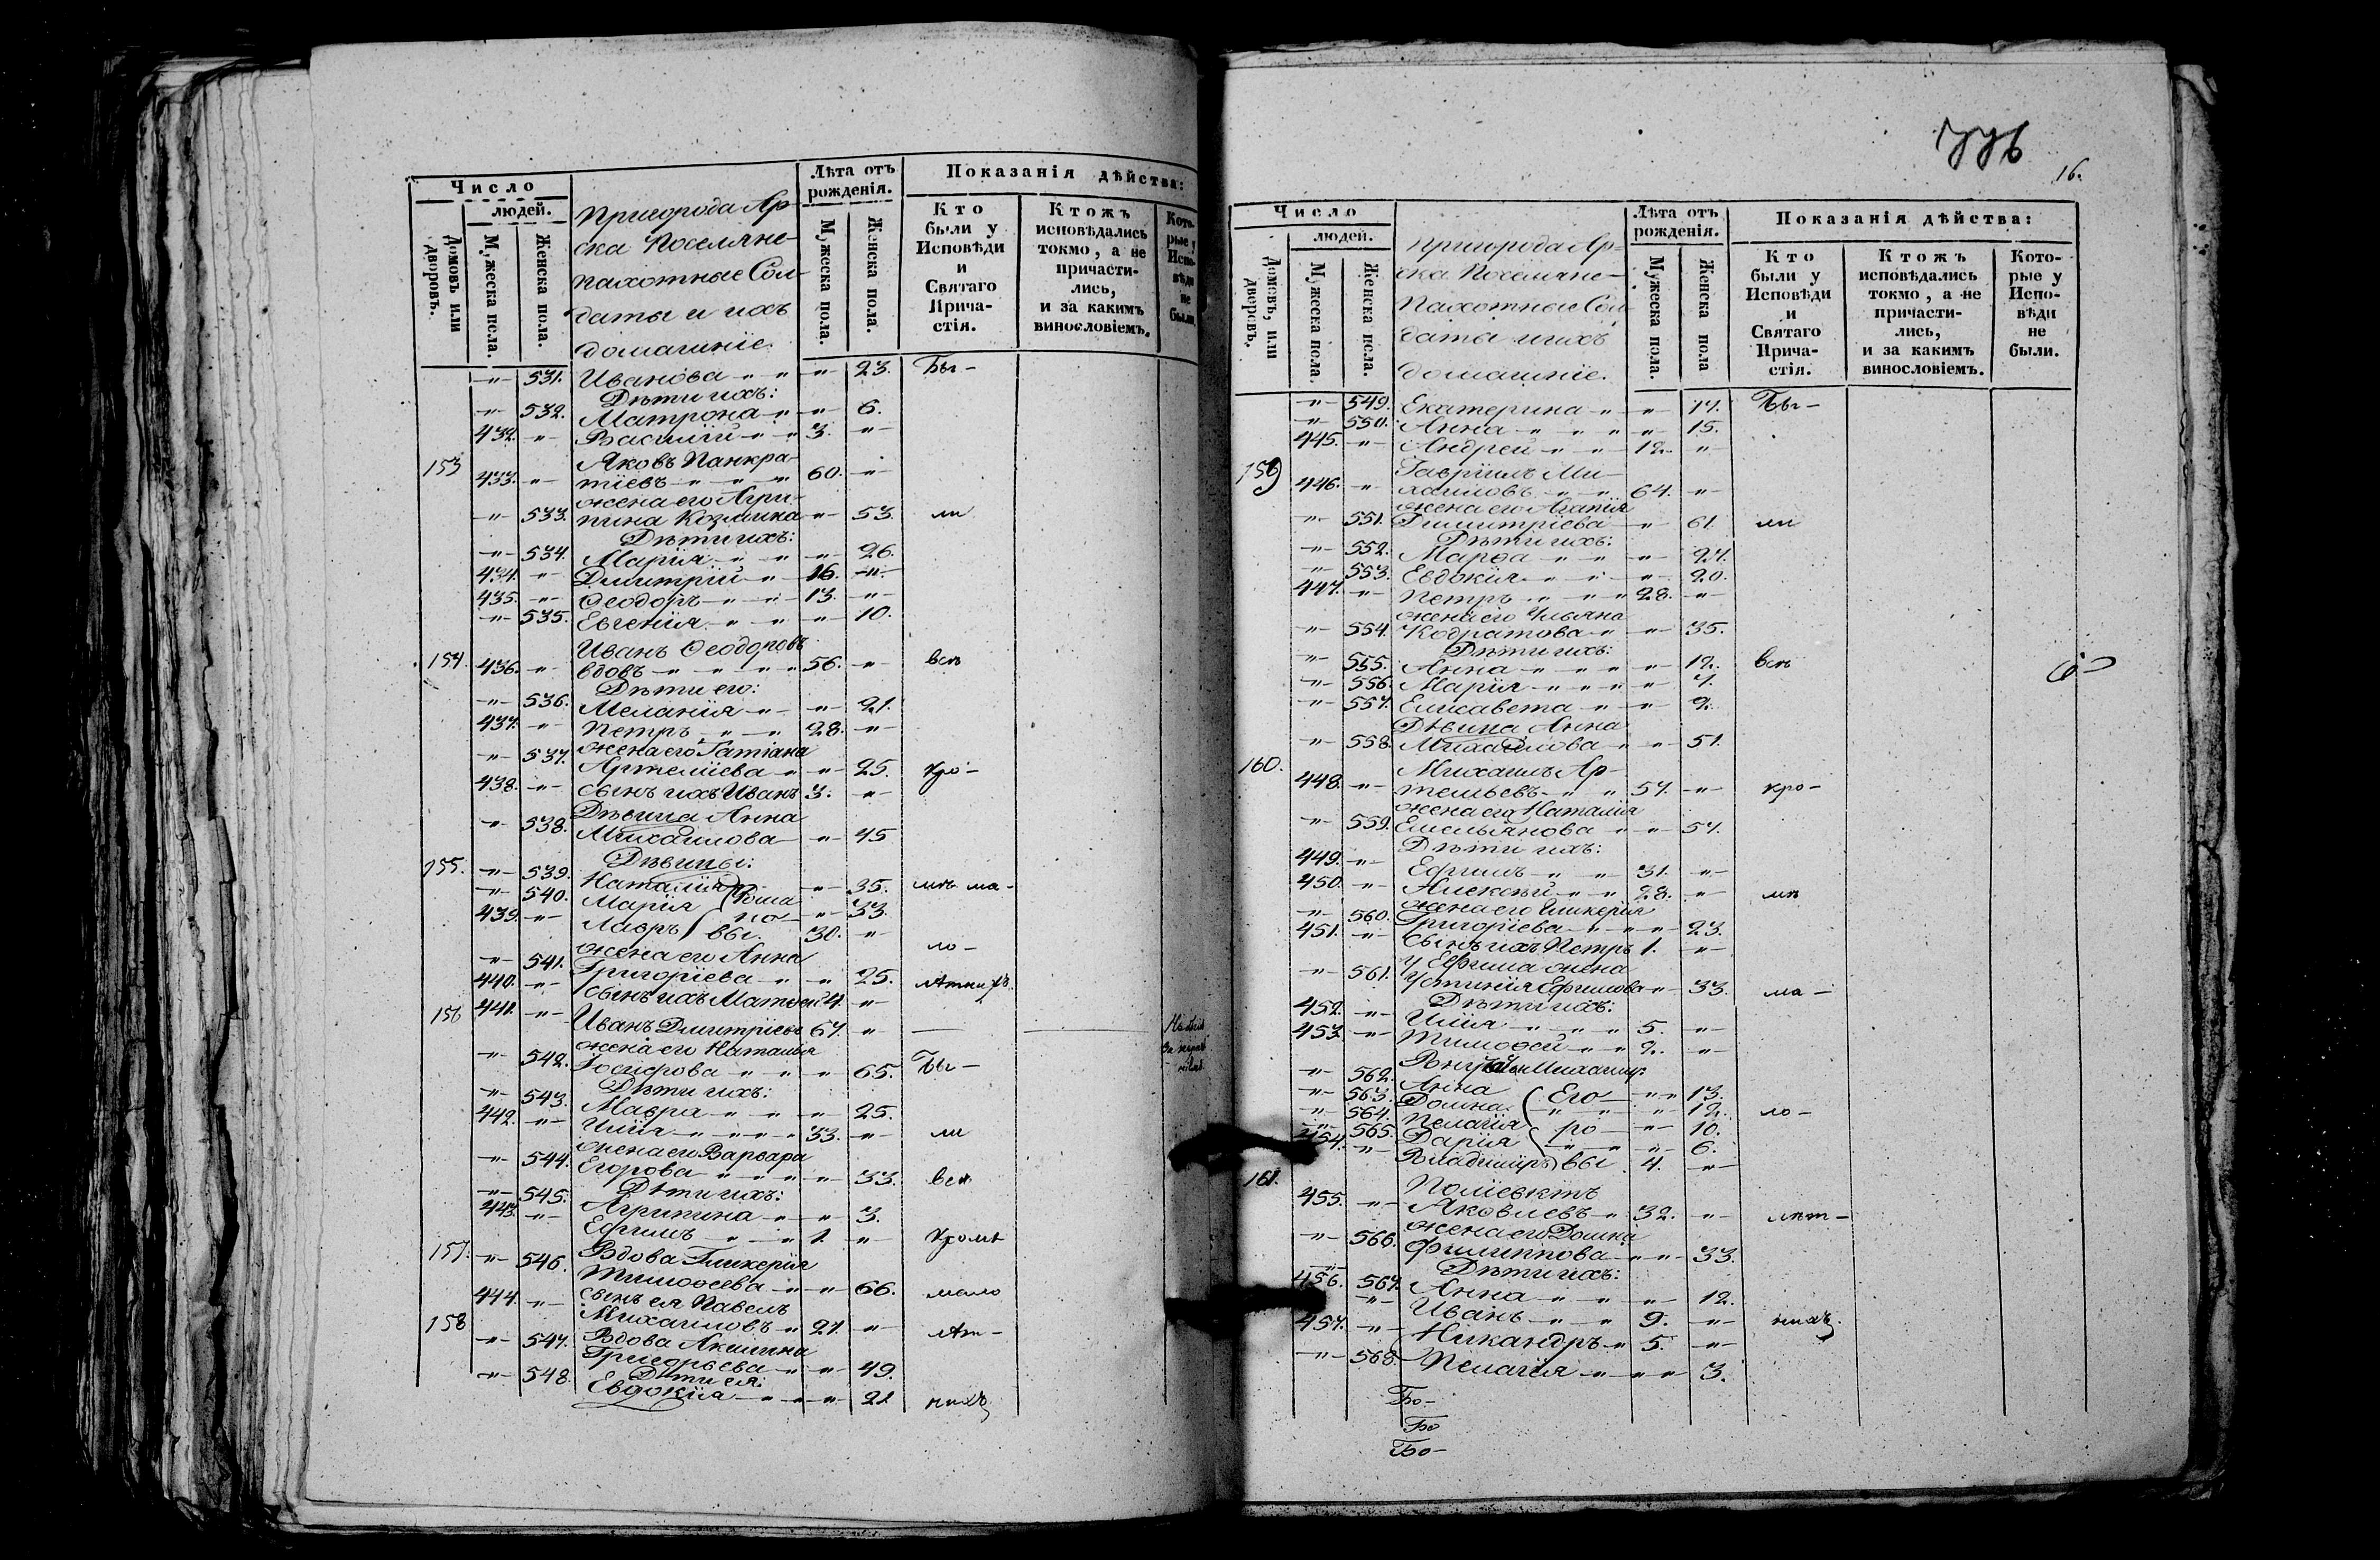 Число
людей.
Домовъ или дворовъ.
Мужеска пола.
Женска пола.
Пригорода Ар-
ска Поселяне-
пахотные Сол-
даты и ихъ
домашніе.
Лѣта отъ рожденія.
Мужеска пола.
Женска пола.
Показанія дѣйства:
Кто были у Исповѣди и Святаго Прича- стія.
Ктожъ исповѣдались токмо, а не причасти- лись, и за какимъ винословіемъ.
Кото- рые у Испо- вѣди не были.
-"- 531. Иванова " " -"- 23. Бы-
Дѣти ихъ:
-"- 532. Матрона " -"- 6.
432. -"- Василій " " 3. -"-
153 Яковъ Панкра-
433. -"- тіевъ " " " 60. -"-
жена его Агри-
-"- 533. пина Козмина -"- 53. ли
Дѣти ихъ:
-"- 534. Марія " " -"- 26.
434. -"- Димитрій " 16. -"-
435. -"- Ѳеодоръ " " 13. -"-
-"- 535. Евгенія " " -"- 10.
Иванъ Ѳеодоровъ
154. 436. -"- вдовъ " " " " 56. -"- всѣ
Дѣти его:
-"- 536. Меланія " -"- 21.
437. -"- Петръ " " 28. -"-
жена его Татіана
-"- 537. Артеміева " -"- 25. кро-
438. -"- сынъ ихъ Иванъ 3. -"-
Дѣвица Анна
-"- 538. Михаилова -"- 45
155. Дѣвицы:
-"- 539. Наталія -"- 35.
-"- 540. Марія Ѳома -"- 33.
439. -"- Лавръ вы. 30. -"-
жена его Анна ло-
-"- 541. Григоріева " " 25. лѣтнихъ.
440. -"- сынъ ихъ Матѳей 4. -"-
156 441. -"- Иванъ Димитріевъ 67. -"-
жена его Наталья
-"- 542. Іосифова " " " 65. Бы-
Дѣти ихъ:
-"- 543. Мавра " " -"- 25.
442. -"- Илія " " " " 33. -"- ли
жена его Варвара
-"- 544. Егорова " " " " 33. всѣ
Дѣти ихъ:
-"- 545. Агрипина " " 3.
443. -"- Ефимъ " " 1. -"- кромѣ
157. Вдова Гликерія
-"- 546. Тимоѳеева " " 66. мало
сынъ ея Павелъ
444. -"- Михаиловъ " 27. -"- лѣт-
158 Вдова Акилина
-"- 547. Григорьева " " 49.
Дѣти ея:
-"- 548. Евдокія " " " 21 нихъ
776
16.
Число
людей.
Домовъ, или дворовъ.
Мужеска пола.
Женска пола.
Пригорода Ар-
ска Поселяне-
Пахотные Сол
даты и ихъ
домашніе.
Лѣта отъ рожденія.
Мужеска пола.
Женска пола
Показанія дѣйства:
Кто были у Исповѣди и Святаго Прича- стія.
Ктожъ исповѣдались токмо, а не причасти- лись, и за какимъ винословіемъ.
Кото- рые у Испо- вѣди не были.
-"- 549. Екатерина " -"- 17. Бы-
-"- 550. Анна " " " -"- 15.
445. -"- Андрей " " 12. -"-
159 Гавріилъ Ми-
446. -"- хаиловъ " " 64. -"-
жена его Агапія
-"- 551. Димитріева -"- 61. ли
Дѣти ихъ:
-"- 552. Марѳа " " -"- 27.
-"- 553. Евдокія " " -"- 20.
447. -"- Петръ " " " 28. -"-
жена его Ульяна
-"- 554. Кодратова " -"- 35.
Дѣти ихъ:
-"- 555. Анна " " " -"- 12. всѣ
-"- 556. Марія " " " -"- 7.
-"- 557. Елисавета " -"- 2.
Дѣвица Анна
-"- 558. Михаилова " -"- 51.
160. Михаилъ Ар-
448. -"- темьевъ " " 57. -"- кро-
жена его Наталія
-"- 559. Емельянова " -"- 57.
Дѣти ихъ:
449. -"- Ефимъ " " 31. -"-
450. -"- Алексѣй " " 28. -"- мѣ
жена его Гликерія
-"- 560. Григоріева " " " 23.
451. -"- сынъ ихъ Петръ 1. -"-
У Ефима жена
-"- 561. Устинія Ефимова " 33. ма-
Дѣти ихъ:
452. -"- Илія " " " 5. -"-
453. -"- Тимоѳей " " 2. -"-
-"- 562. Анна Его " " 13.
-"- 563. Домна " " 12. ло-
-"- 564. Пелагія ро -"- 10.
-"- 565. Дарія " " 6.
454. -"- Владиміръ вы 4. -"-
161. Поліевктъ
455. -"- Яковлевъ " 32. -"- лѣт-
жена его Домна
-"- 566. Филиппова " " 33.
Дѣти ихъ:
-"- 567. Анна " " -"- 12.
456. -"- Иванъ " " 9. -"- нихъ.
457. -"- Никандръ " 5. -"-
-"- 568. Пелагія " " " 3.
Бо-
Бо
Бо-